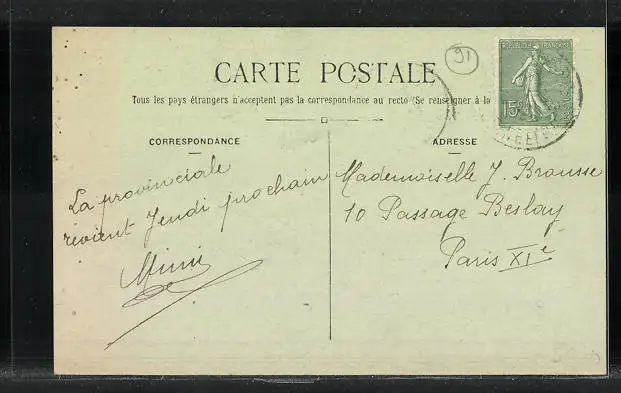 91
RÉPUBLIQUE FRANÇAISE
15c
CARTE POSTALE
Tous les pays étrangers n'acceptent pas la correspondance au recto (Se renseigner à la
CORRESPONDANCE
La provinciale
revient Jeudi prochain
Mimi
ADRESSE
Mademoiselle J. Brousse
10 Passage Beslay
Paris XIe